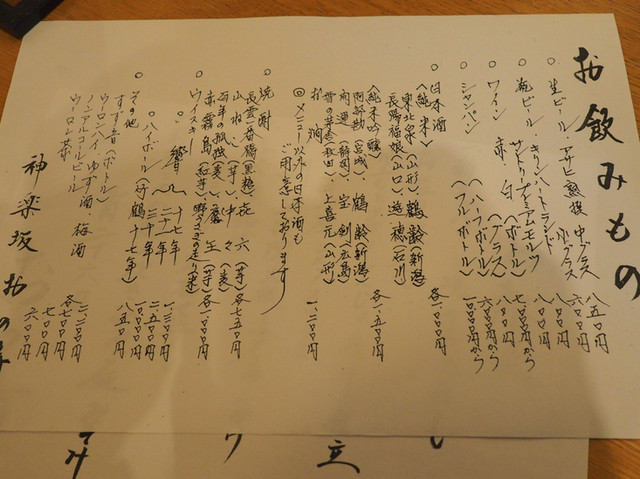 お飲みもの
○ 生ビール・アサヒ熟撰 中グラス 八五〇円
小グラス 六〇〇円
○ 瓶ビール・キリンハートランド 八〇〇円
サントリープレミアムモルツ 八〇〇円
○ ワイン 赤 白 (ボトル) 七〇〇〇円から
(グラス) 八〇〇円
○ シャンパン (ハーフボトル) 六〇〇〇円から
(フルボトル) 一〇〇〇〇円から
○ 日本酒
(純米) 各一、〇〇〇円
東北泉(山形)、鶴齢(新潟)
長陽福娘(山口)、遊穂(石川)
(純米吟醸) 各一、五〇〇円
阿部勘(宮城)、鶴齢(新潟)
開運(静岡)、宝剣(広島)
雪の茅舎(秋田)、上喜元(山形)
お燗 一、二〇〇円
◎ メニュー以外の日本酒も
ご用意しております
○ 焼酎
長雲 㐂六(芋) 各七五〇円
山ねこ(芋)、中々(麦)
百年の孤独(麦)、魔王(芋) 各一、〇〇〇円
赤霧島
○ ウイスキー
響 十七年 一、三〇〇円
二十一年 二、五〇〇円
三十年 一〇、〇〇〇円
ハイボール 八五〇円
○ その他
すず音(ボトル) 二、二〇〇円
ウーロンハイ ゆず酒、梅酒 各七〇〇円
ノンアルコールビール 七〇〇円
ウーロン茶 六〇〇円
神楽坂 お